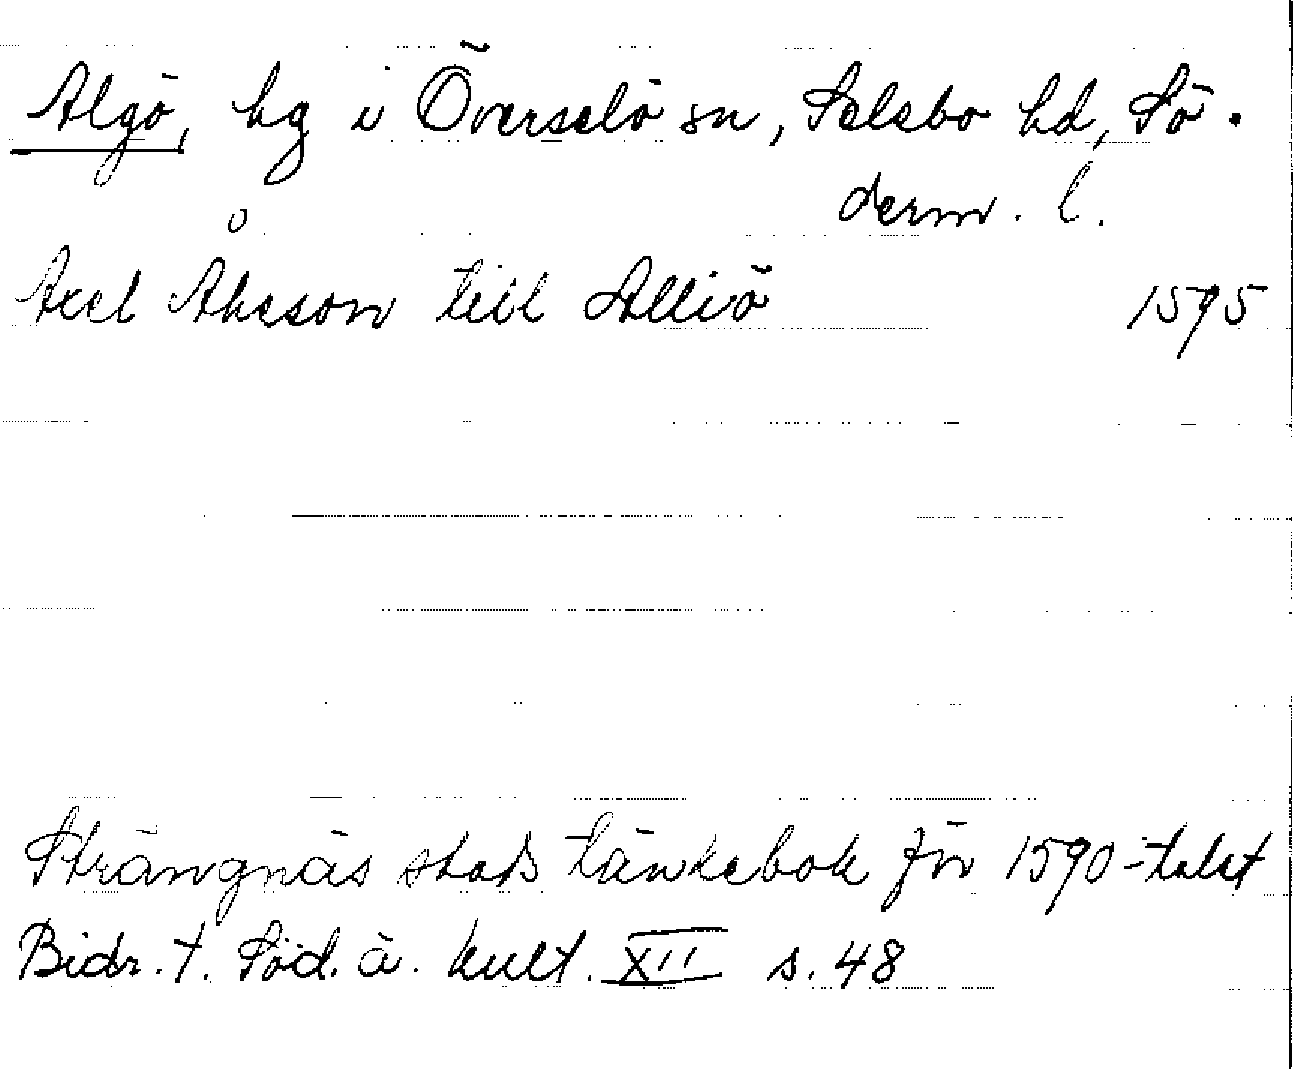 Algö, hg i Överselö sn, Selebo hd, Sö-
derm. l.
Axel Åkeson till Alliö 1595
Strängnäs stads tänkebok för 1590-talet
Bidr. t. Söd. ä. kult. XII s. 48